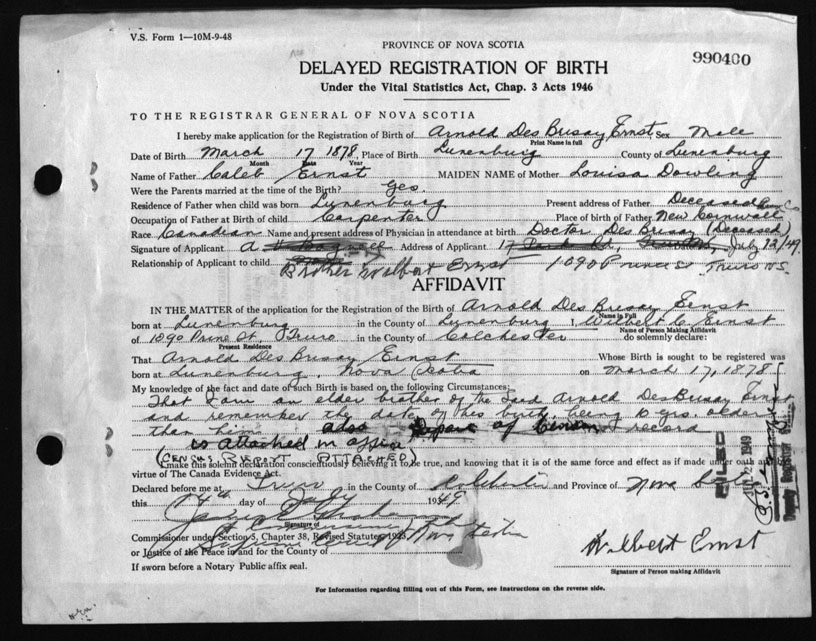 V.S. Form 1—10M-9-48
PROVINCE OF NOVA SCOTIA
990400
DELAYED REGISTRATION OF BIRTH
Under the Vital Statistics Act, Chap. 3 Acts 1946
TO THE REGISTRAR GENERAL OF NOVA SCOTIA
I hereby make application for the Registration of Birth of Arnold Des Brisay Ernst, Sex Male
Print Name in full
Date of Birth March 17 1878, Place of Birth Lunenburg County of Lunenburg
Month Date Year
Name of Father Caleb Ernst MAIDEN NAME of Mother Louisa Dowling
Were the Parents married at the time of the Birth? Yes.
Residence of Father when child was born Lunenburg Present address of Father Deceased
Occupation of Father at Birth of child Carpenter Place of birth of Father New Cornwall
Race Canadian Name and present address of Physician in attendance at birth Doctor Des Brisay (Deceased)
Signature of Applicant A Address of Applicant 17 Park Rd, July 12/49.
Relationship of Applicant to child Brother Wilbert Ernst 1090 Prince St Truro N.S.
AFFIDAVIT
IN THE MATTER of the application for the Registration of the Birth of Arnold Des Brisay Ernst
Name in Full
born at Lunenburg in the County of Lunenburg I, Wilbert C. Ernst
Name of Person Making Affidavit
of 1090 Prine St, Truro in the County of Colchester do solemnly declare:
Present Residence
That Arnold Des Brisay Ernst Whose Birth is sought to be registered was
born at Lunenburg, Nova Scotia on March 17, 1878
My knowledge of the fact and date of such Birth is based on the following Circumstances:
That I am an elder brother of the said Arnold DesBrisay Ernst
and remember the date of his birth, being 10 yrs. older
than him also Report of Census record
is attached in office
(CENSUS REPORT ATTACHED)
I make this solemn declaration conscientiously believing it to be true, and knowing that it is of the same force and effect as if made under oath and by
virtue of The Canada Evidence Act.
Declared before me at Truro in the County of Colchester and Province of Nova Scotia
this 14th day of July 1949
Signature of
Commissioner under Section 5, Chapter 38, Revised Statutes 1923
Supreme Court of Nova Scotia
or Justice of the Peace in and for the County of
If sworn before a Notary Public affix seal.
Wilbert Ernst
Signature of Person making Affidavit
For Information regarding filling out of this Form, see Instructions on the reverse side.
FILED
1949
Deputy Registrar